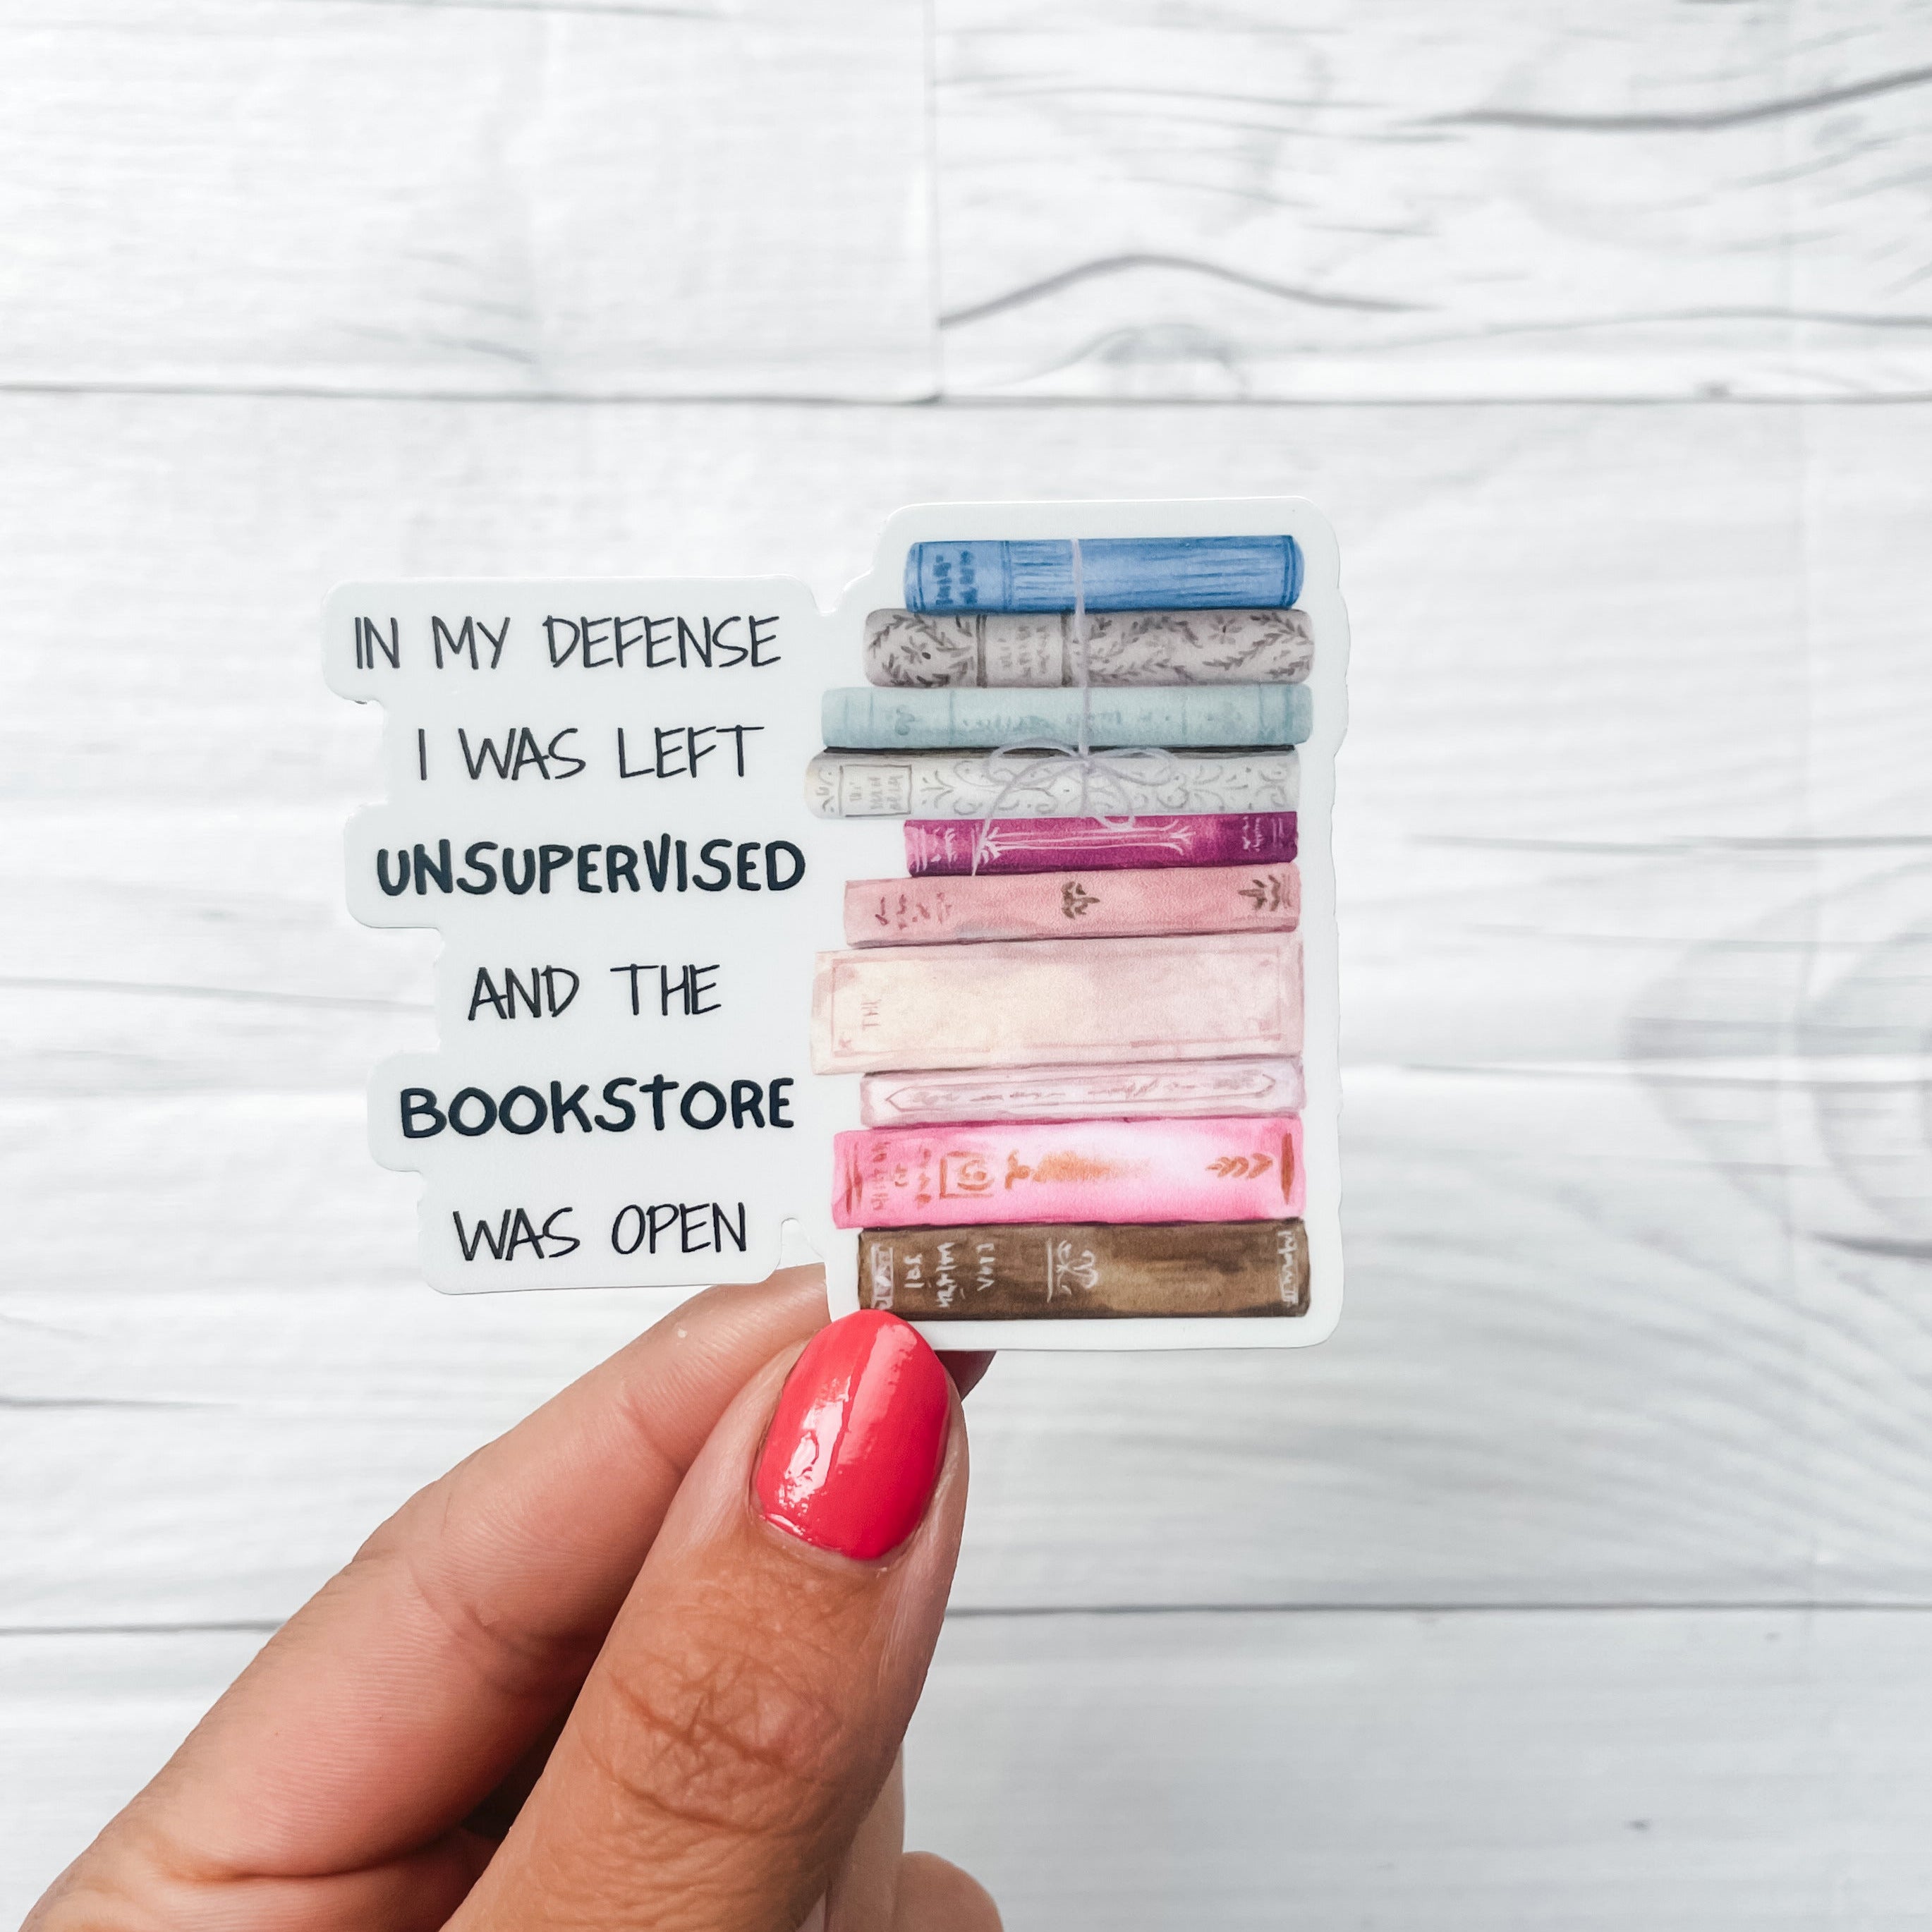 IN MY DEFENSE
I WAS LEFT
UNSUPERVISED
AND THE
BOOKSTORE
WAS OPEN
THE